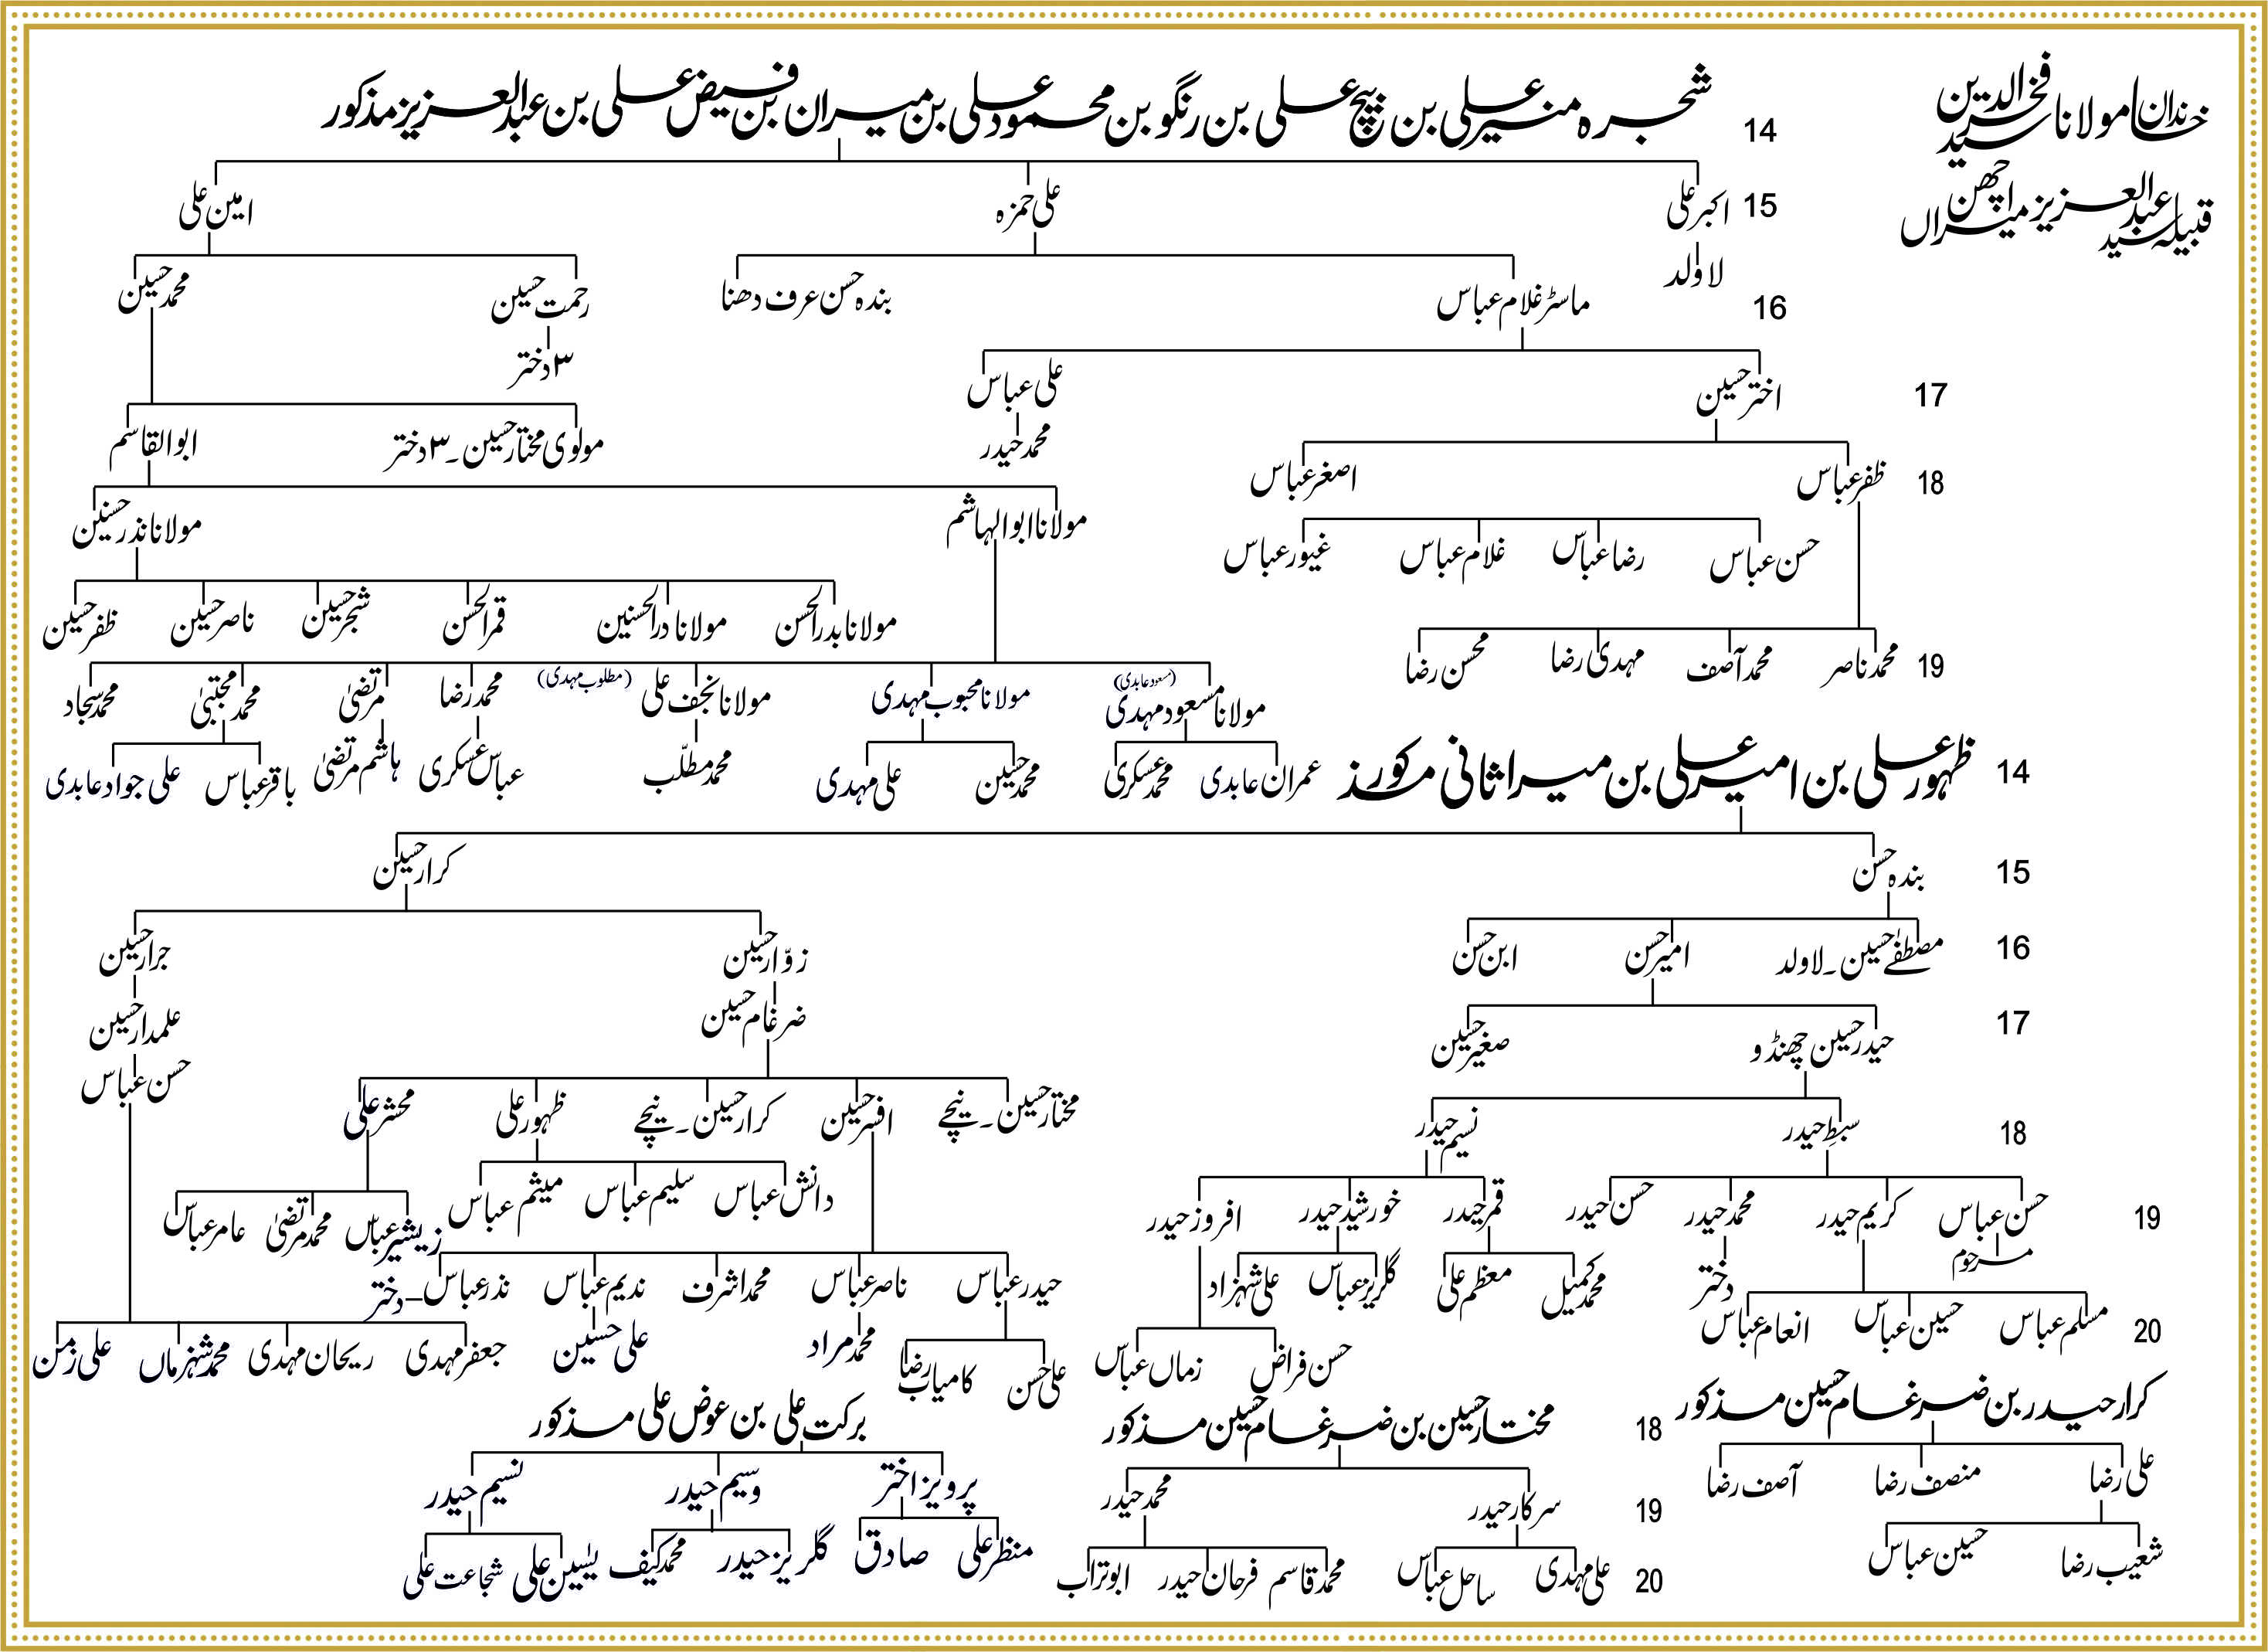 خاندان مولانا سید فخرالدین
قبیلہ سید عبدالعزیز اچھن میراں
شجرہ منیر علی بن پیچ علی بن رنگو بن محمود علی بن میران بن فیض علی بن عبدالعزیز مذکور 14
15 اکبر علی علی حمزہ امین علی
لاولد
16 ماسٹر غلام عباس بندہ حسن عرف دھنا رحمت حسین محمد حسین
۳ دختر
17 اختر حسین علی عباس
محمد حیدر مولوی مختار حسین۔ ۳ دختر ابوالقاسم
18 ظفر عباس اصغر عباس
مولانا ابوالہاشم مولانا نذر حسنین
حسن عباس رضا عباس غلام عباس غیور عباس
مولانا بدرالحسن مولانا درالحسنین قمر الحسن شجر حسین ناصر حسین ظفر حسین
19 محمد ناصر محمد آصف مہدی رضا محسن رضا
(مسعود عابدی) (مطلوب مہدی)
مولانا مسعود مہدی مولانا محبوب مہدی مولانا نجف علی محمد رضا مرتضیٰ محمد مجتبیٰ محمد سجاد
عمران عابدی محمد عسکری محمد حسین علی مہدی محمد مطلّب عباس عسکری ہاشم مرتضیٰ باقر عباس علی جواد عابدی
14 ظہور علی بن امیر علی بن میرا ثانی مذکور
15 بندہ حسن کرار حسین
16 مصطفےٰ حسین۔ لاولد امیر حسن ابن حسن زوّار حسین جرار حسین
17 حیدر حسین چھنڈو صغیر حسین ضرغام حسین علمدار حسین
حسن عباس
18 سبطِ حیدر نسیم حیدر مختار حسین۔ نیچے افسر حسین کرار حسین۔ نیچے ظہور علی محشر علی
دانش عباس سلیم عباس میثم عباس
19 حسن عباس کریم حیدر محمد حیدر حسن حیدر قمر حیدر خورشید حیدر افروز حیدر
مرحوم دختر
زیشیر عباس محمد مرتضیٰ عامر عباس
محمد کمیل معظم علی گلریز عباس علی شہزاد حیدر عباس ناصر عباس محمد اشرف ندیم عباس نذر عباس – دختر
20 مسلم عباس حسین عباس انعام عباس
حسن فراض زماں عباس علی حسن کامیاب رضا محمد مراد علی حسین جعفر مہدی ریحان مہدی محمد شہرماں علی زمن
کرار حیدر بن ضرغام حسین مذکور
18 مختار حسین بن ضرغام حسین مذکور
برکت علی بن عوض علی مذکور
علی رضا منصف رضا آصف رضا
19 سرکار حیدر محمد حیدر
پرویز اختر وسیم حیدر نسیم حیدر
شعیب رضا حسین عباس
20 علی مہدی ساحل عباس محمد قاسم فرحان حیدر ابوتراب
منظر علی صادق گلریز حیدر محمد کیف یٰسین علی شجاعت علی